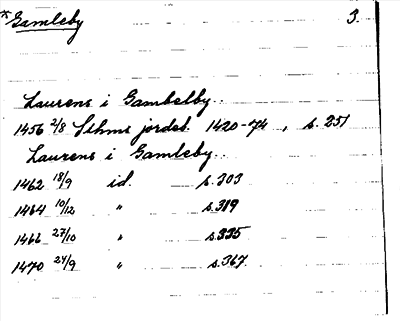 *Gamleby 3.
Laurens i Gambelby.
1456 2/8 Sthms jordeb. 1420-74, s. 251
Laurens i Gamleby.
1462 18/9 id. s. 203
1464 10/12 " s. 319
1466 27/10 " s. 335
1470 24/9 " s. 367.